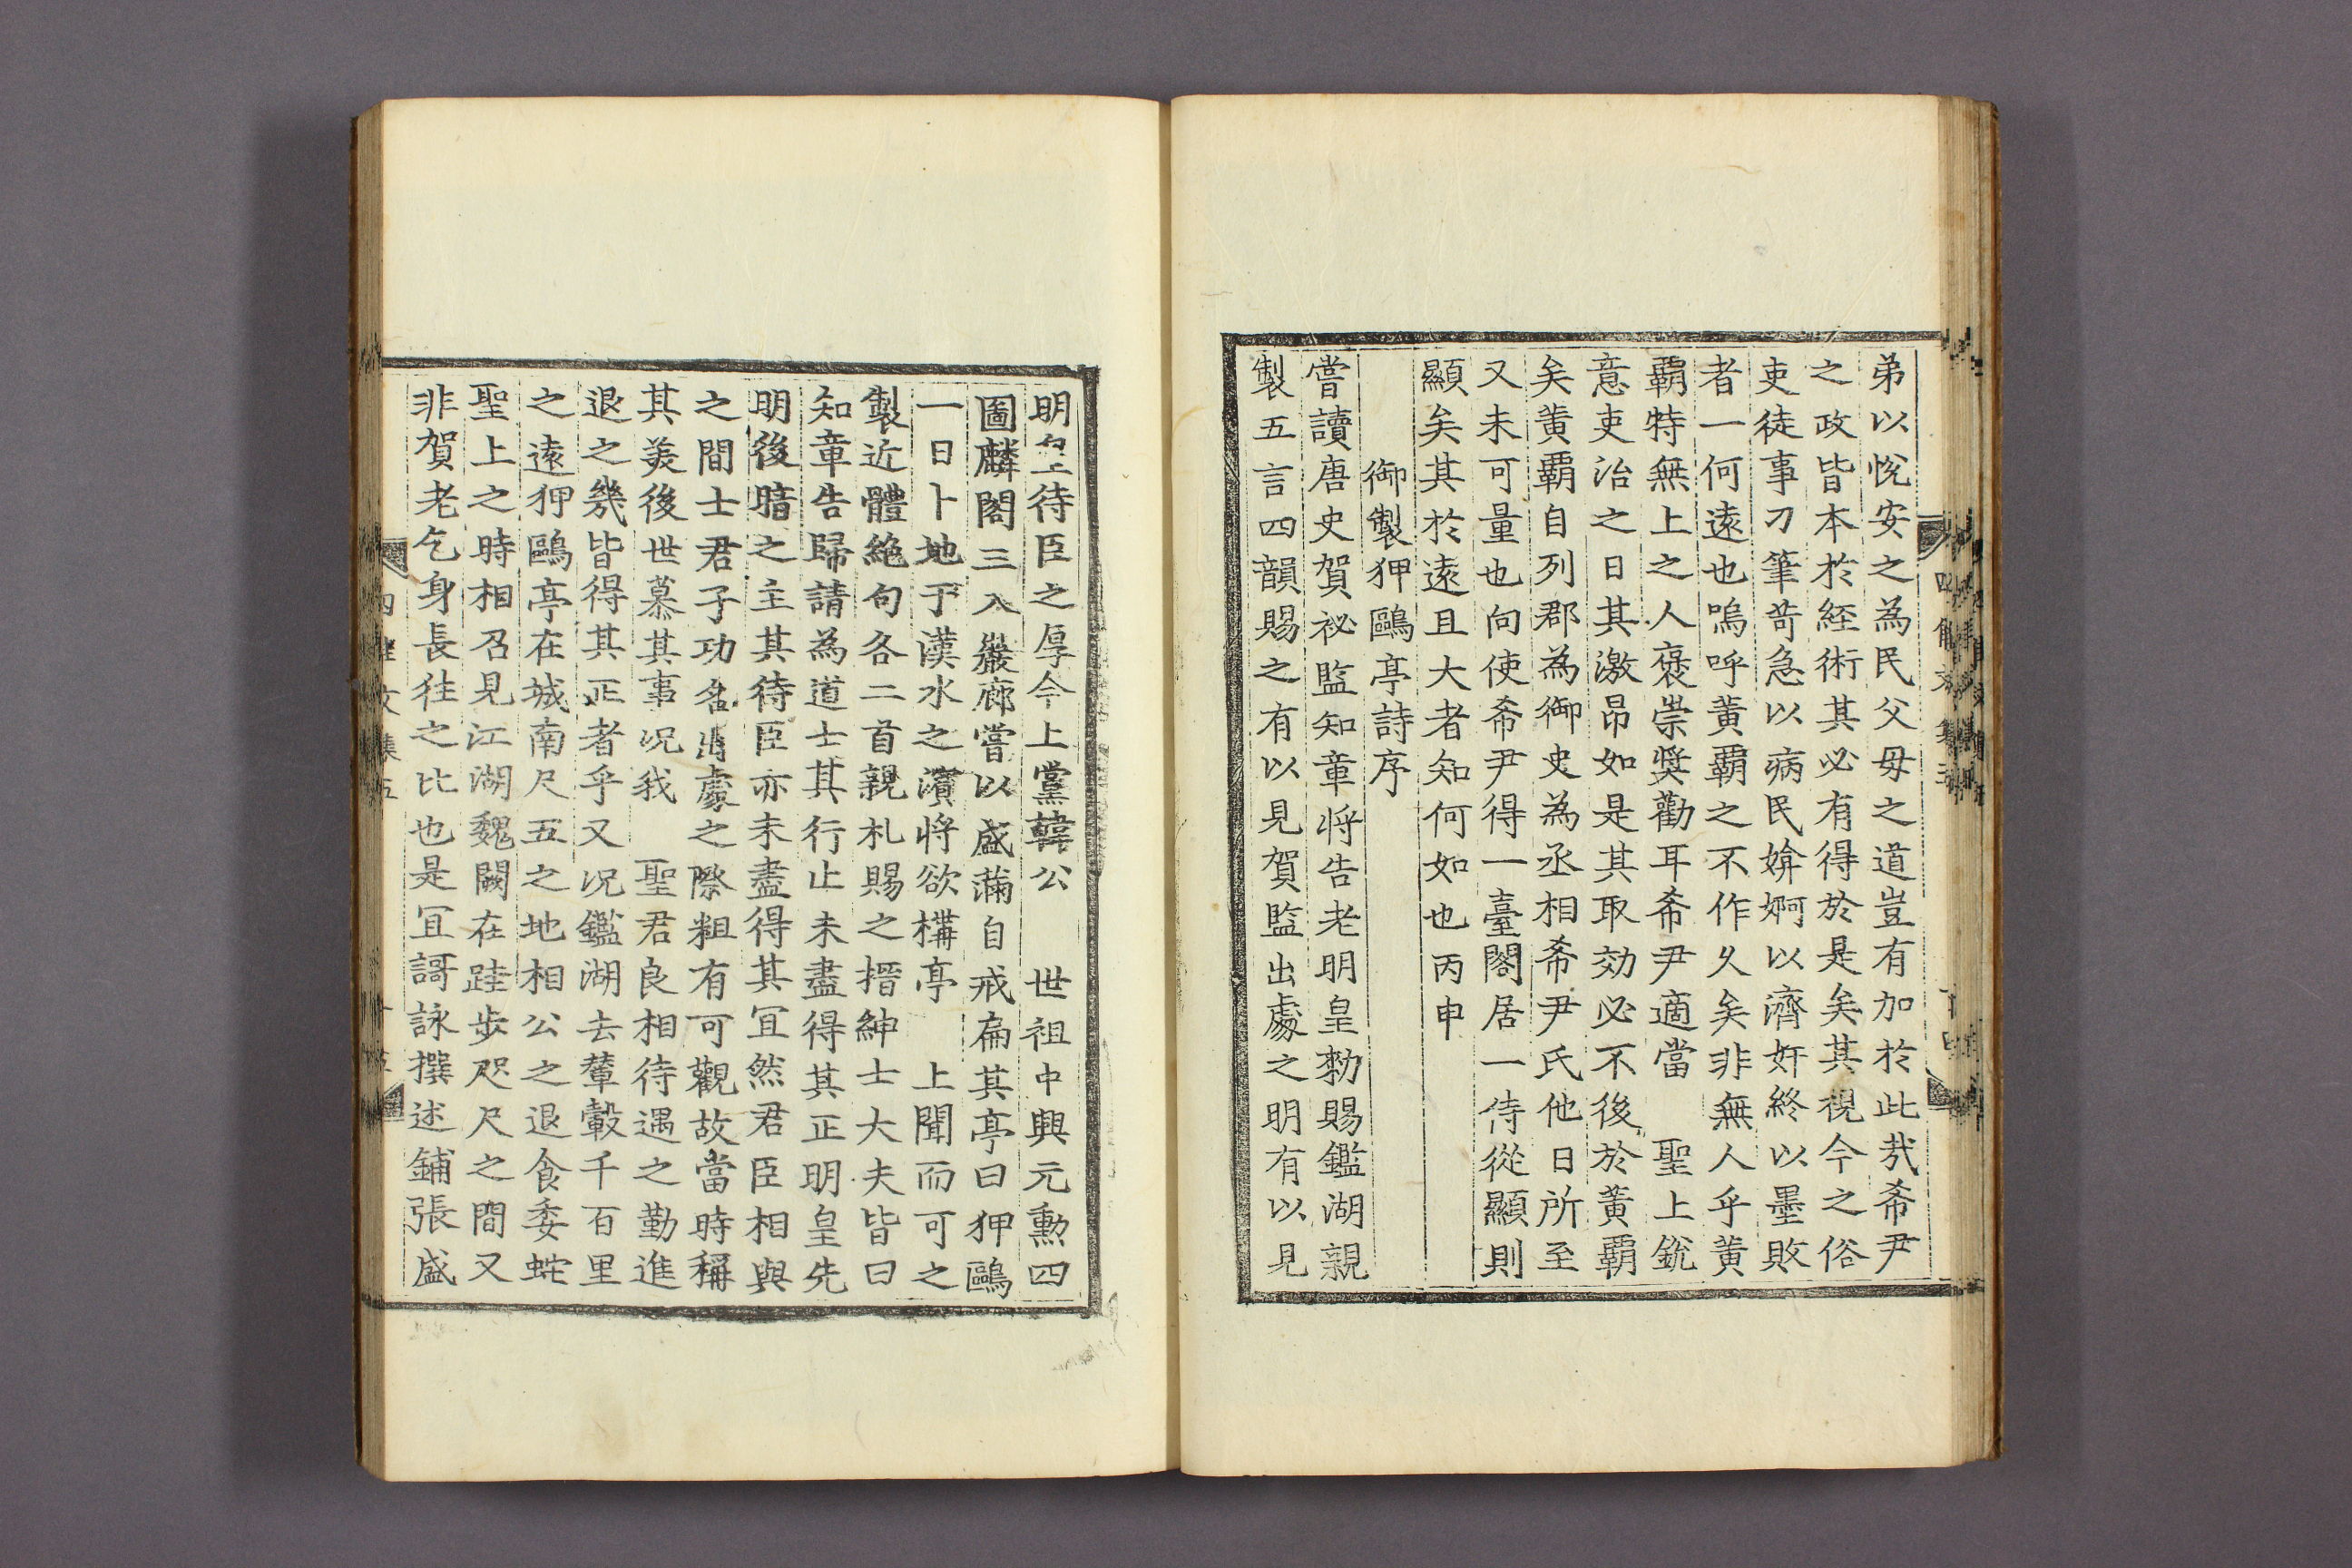 弟以悅安之為民父母之道豈有加於此㢤希尹
之政皆本於経術其必有得於是矣其視今之俗
吏徒事刀筆苛急以病民婠婀以濟奸終以墨敗
者一何遠也嗚呼黃覇之不作久矣非無人乎黃
覇特無上之人褒崇奨勸耳希尹適當　聖上銳
意吏治之日其激昂如是其取効必不後於黃覇
矣黃覇自列郡為御史為丞相希尹氏他日所至
又未可量也向使希尹得一臺閣居一侍從顯則
顯矣其於遠且大者知何如也丙申
御製狎鷗亭詩序
嘗讀唐史賀祕監知章将告老明皇勑賜鑑湖親
製五言四韻賜之有以見賀監出處之明有以見
明皇待臣之厚今上黨韓公　世祖中興元勳四
圖麟閣三入巖廊嘗以盛滿自戒扁其亭曰狎鷗
一日卜地于漢水之濱將欲構亭　上聞而可之
製近體絶句各二首親札賜之搢紳士大夫皆曰
知章告歸請為道士其行止未盡得其正明皇先
明後暗之主其待臣亦未盡得其冝然君臣相與
之間士君子功名出處之際粗有可觀故當時稱
其羙後世慕其事况我　聖君良相待遇之勤進
退之幾皆得其正者乎又况鑑湖去輦轂千百里
之遠狎鷗亭在城南尺五之地相公之退食委蛇
聖上之時相召見江湖魏闕在跬步咫尺之間又
非賀老乞身長往之比也是冝謌詠撰述鋪張盛